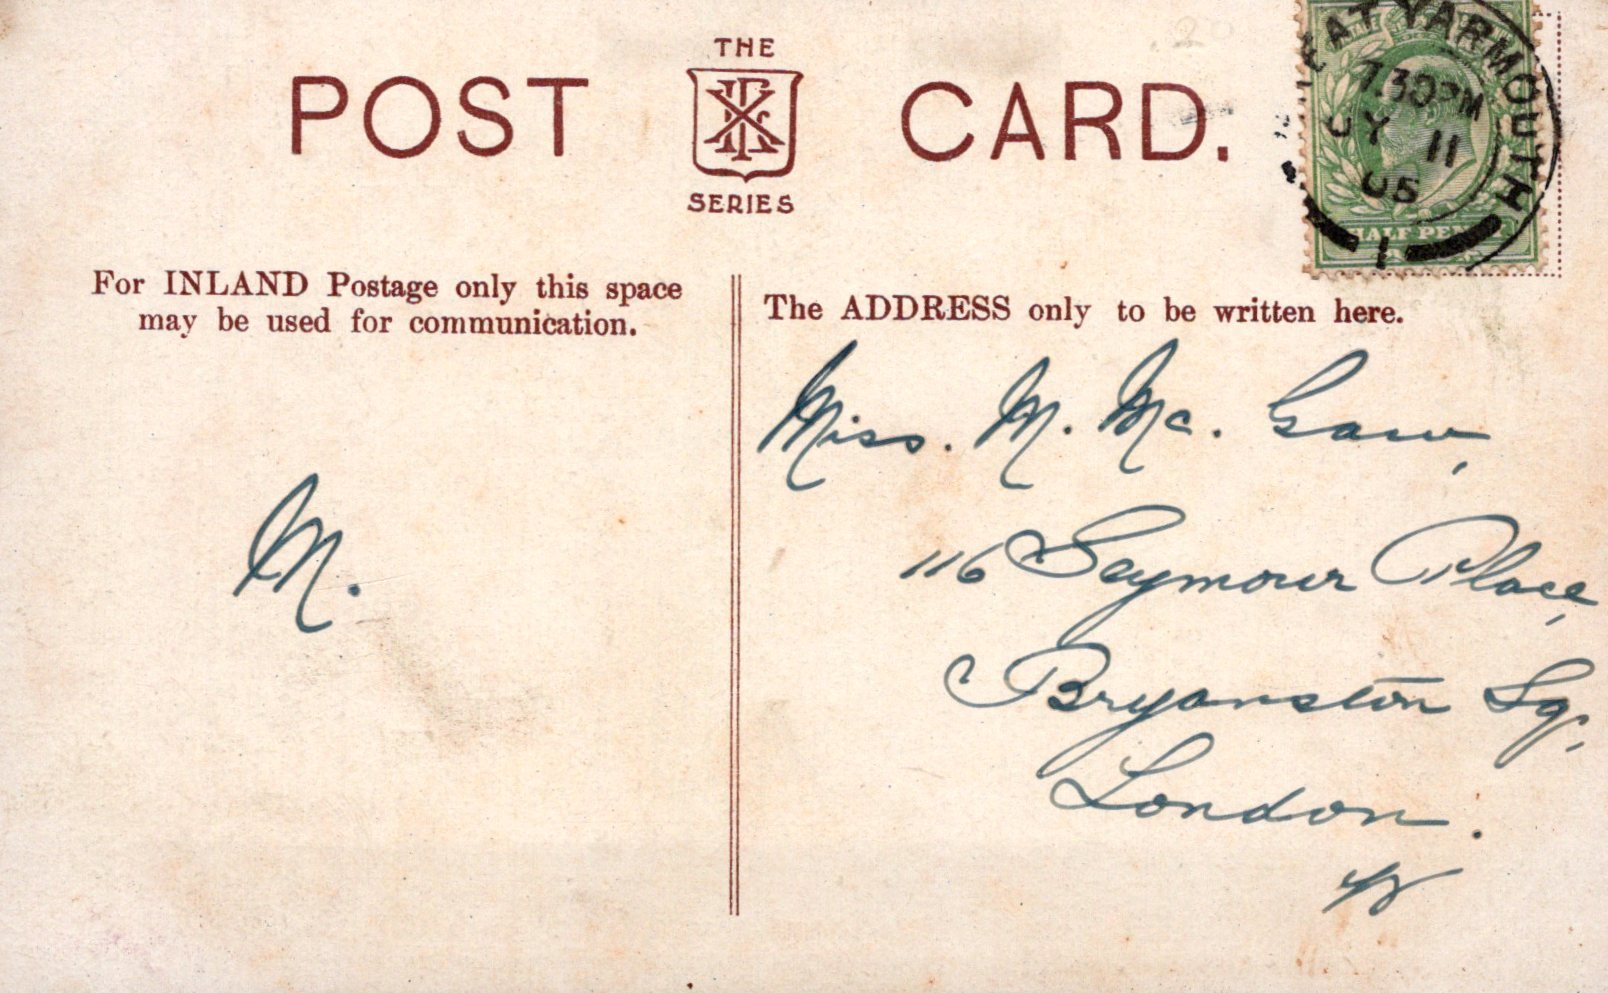 THE
POST CARD.
SERIES
For INLAND Postage only this space
may be used for communication.
The ADDRESS only to be written here.
M.
Miss. M. Mc. Gaw,
116 Seymour Place,
Bryanston Sq.,
London.
W
EAT YARMOUTH
7.30PM
JY 11
1
HALF PENNY